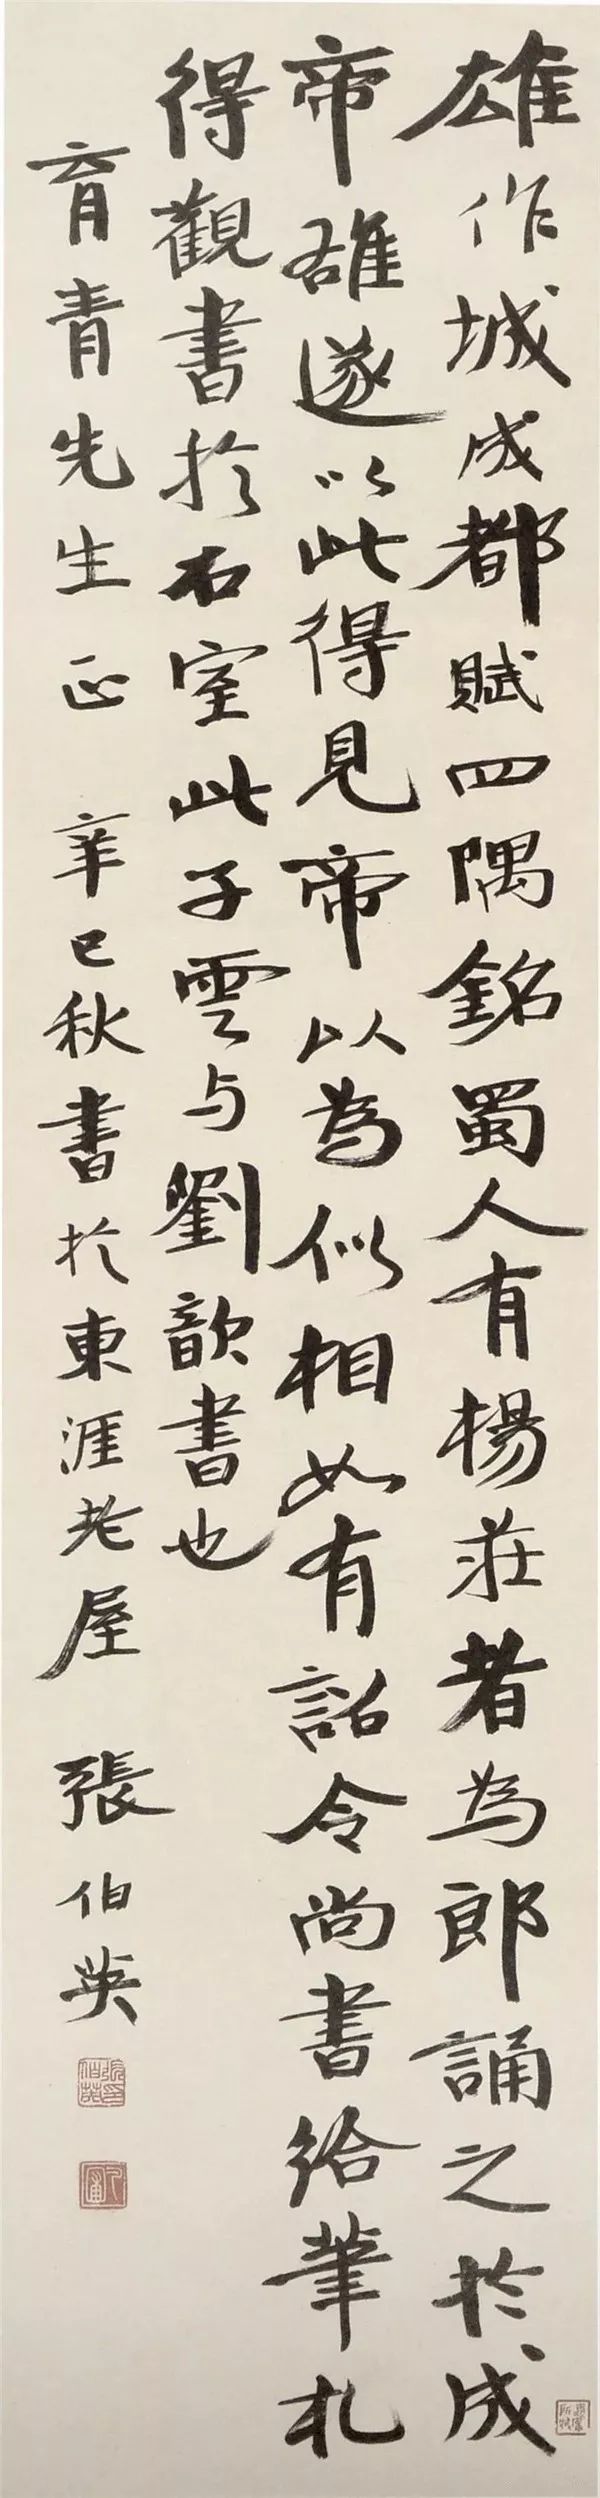 雄作城成都賦四隅銘蜀人有楊莊者為郎誦之於成
帝雄遂以此得見帝以為似相如有詔令尚書給筆札
得觀書於石室此子雲与劉歆書也
育青先生正 辛巳秋書於東涯老屋 張伯英
張伯英印